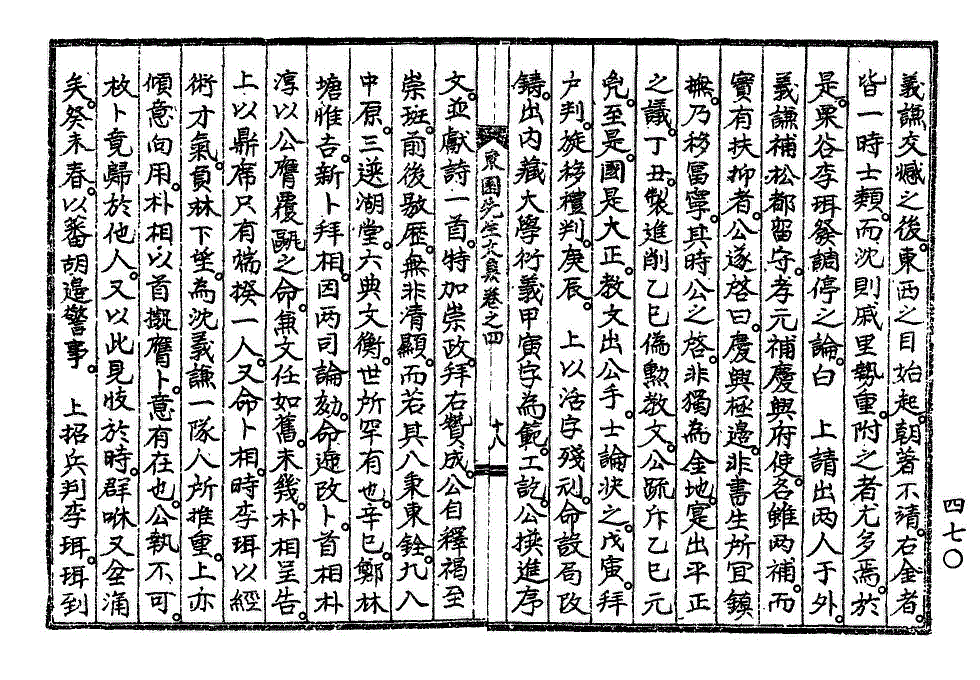 義謙交憾之後。東西之目始起。朝著不靖。右金者
皆一時士類。而沈則戚里勢重。附之者尤多焉。於
是。栗谷李珥發調停之論。白　上請出兩人于外。
義謙補松都留守。孝元補慶興府使。名雖兩補。而
實有扶抑者。公遂啓曰。慶興極邊。非書生所宜鎭
撫。乃移富寧。其時公之啓。非獨爲金地。寔出平正
之議。丁丑。製進削乙巳僞勳敎文。公疏斥乙巳元
兇。至是。國是大正。敎文出公手。士論快之。戊寅。拜
戶判。旋移禮判。庚辰。　上以活字殘刓。命設局改
鑄。出內藏大學衍義甲寅字爲範。工訖。公撰進序
東園先生文集卷之四　十八
文。並獻詩一首。特加崇政。拜右贊成。公自釋褐至
崇班。前後敭歷。無非淸顯。而若其八秉東銓。九入
中原。三選湖堂。六典文衡。世所罕有也。辛巳。鄭林
塘惟吉新卜拜相。因兩司論劾。命遞改卜。首相朴
淳以公膺覆甌之命。兼文任如舊。未幾。朴相呈告。
上以鼎席只有端揆一人。又命卜相。時李珥以經
術才氣。負林下望。爲沈義謙一隊人所推重。上亦
傾意向用。朴相以首擬膺卜。意有在也。公執不可。
枚卜竟歸於他人。又以此見忮於時。群咻又坌涌
矣。癸未春。以蕃胡邊警事。　上招兵判李珥。珥到
四七〇